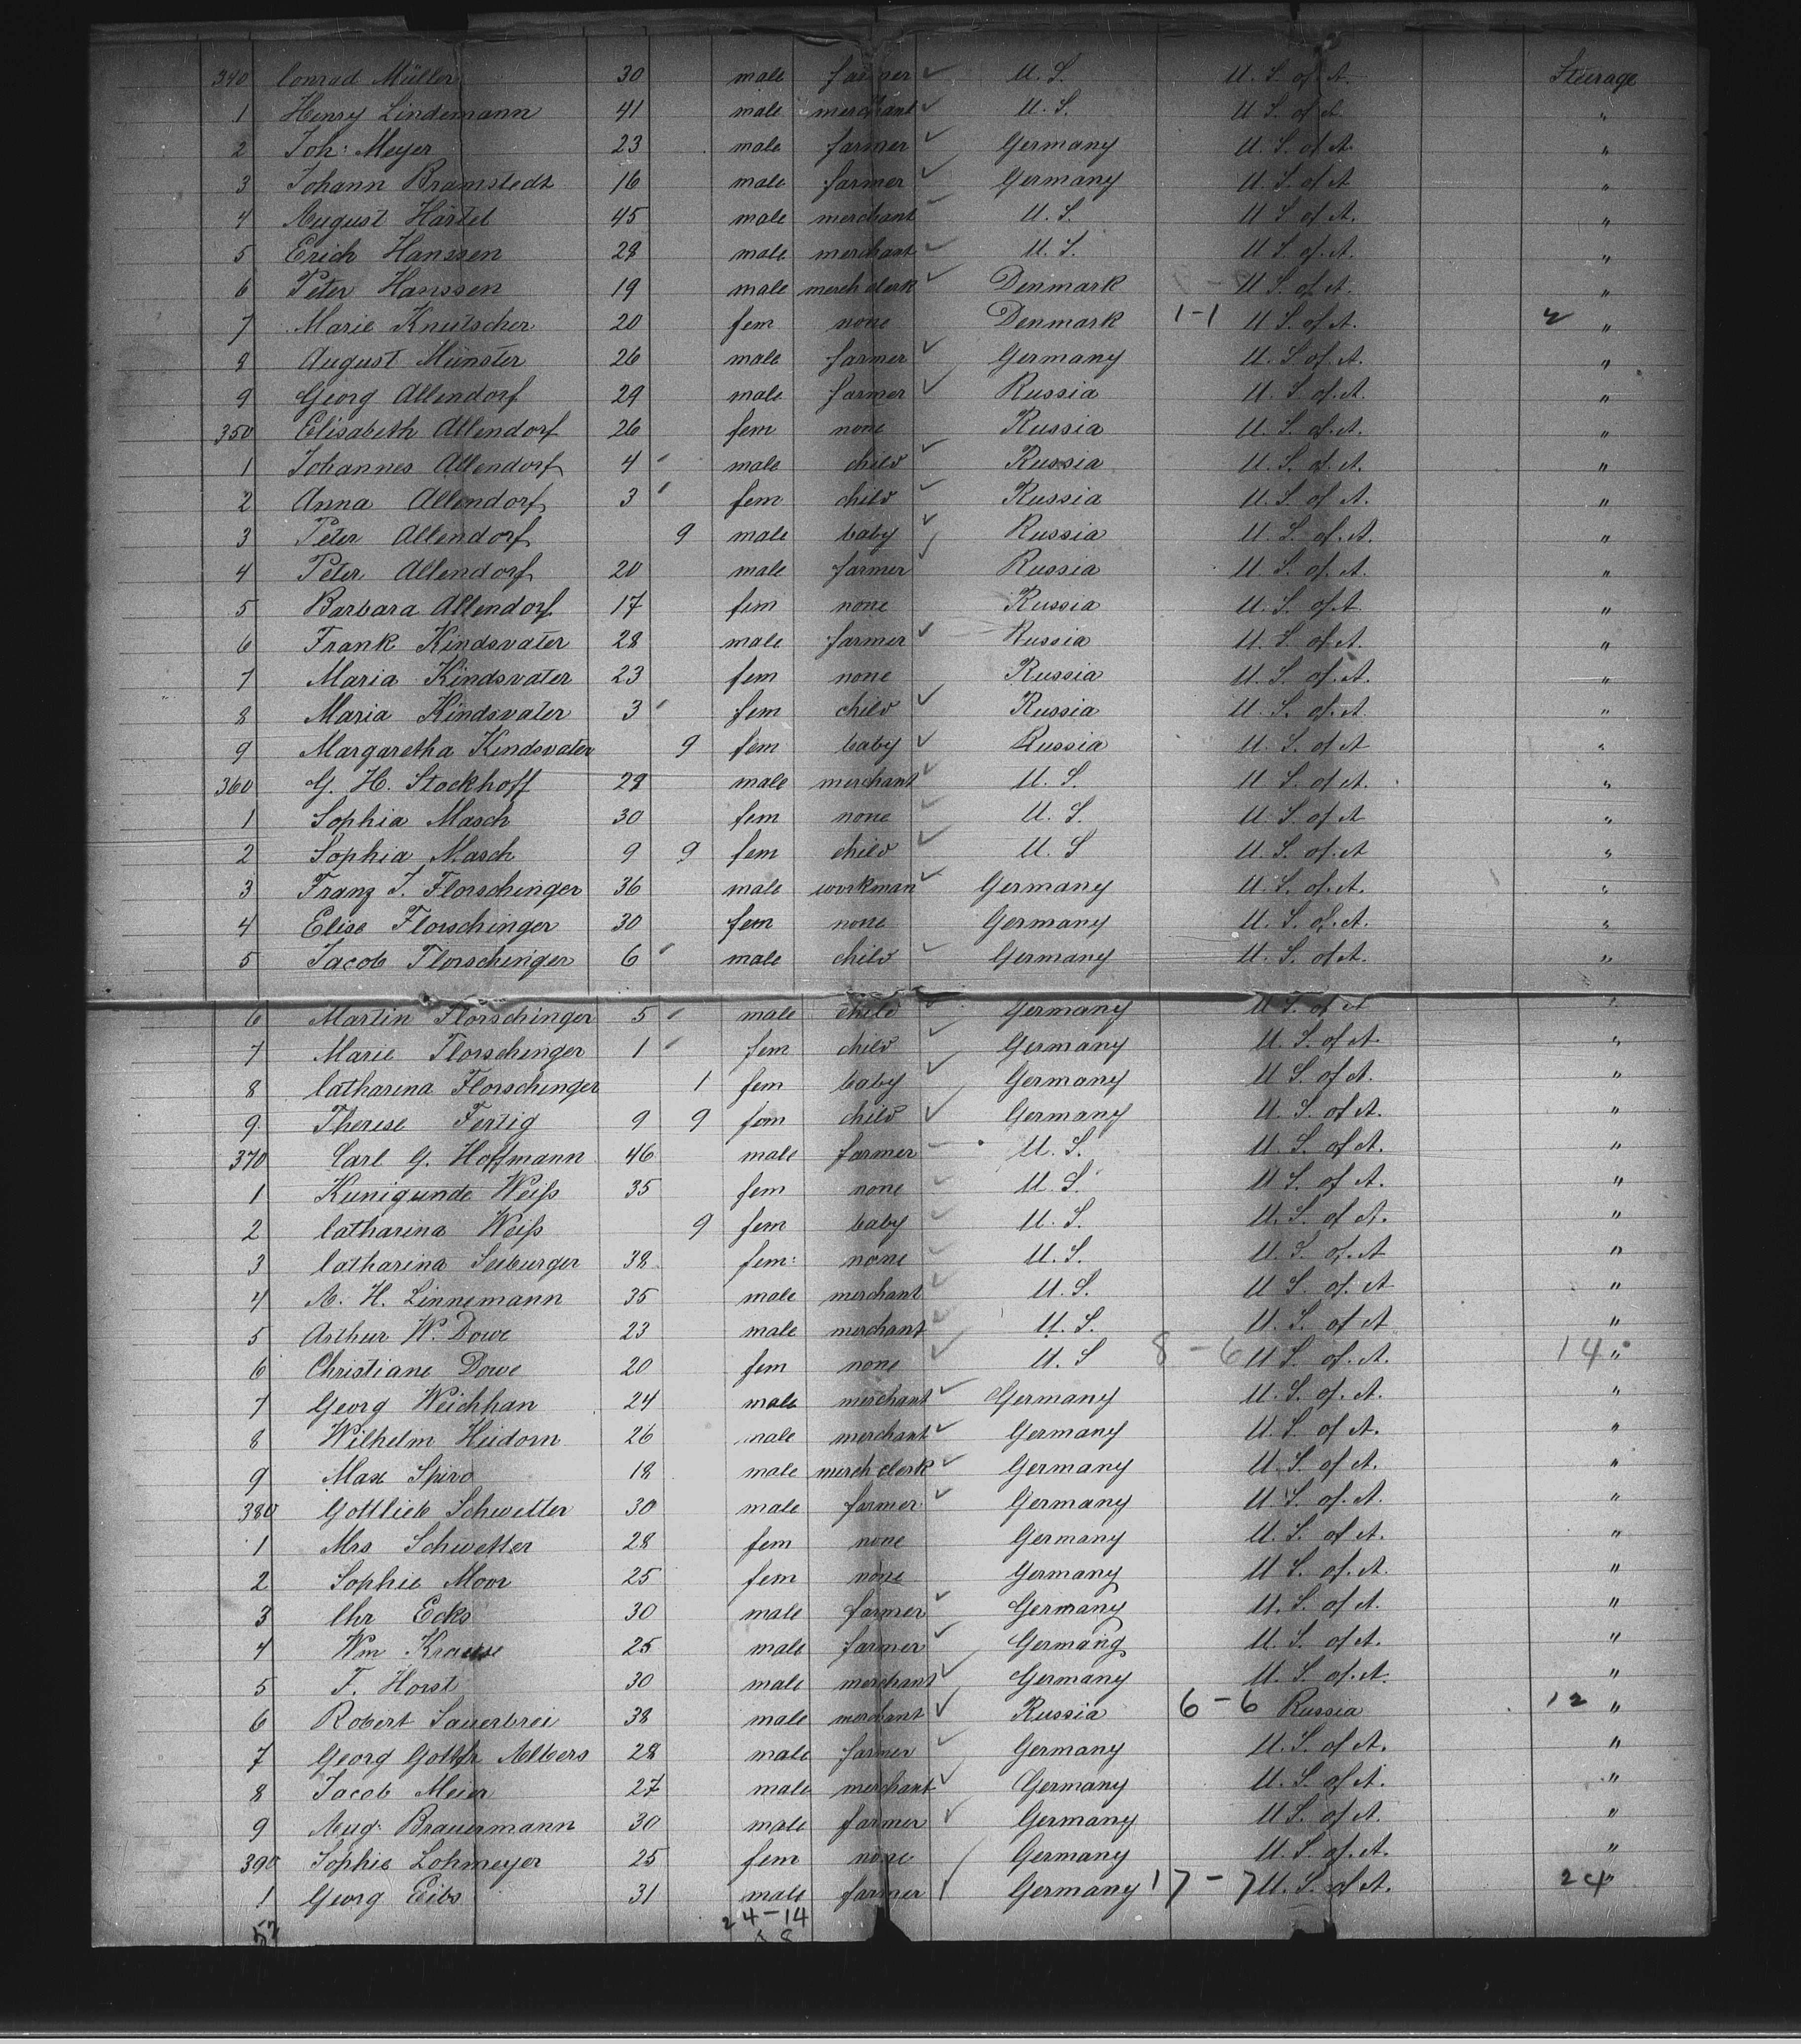 340 Conrad Müller 30 male farmer ✓ U. S. U. S. of A. Steerage
1 Henry Lindemann 41 male merchant ✓ U. S. U. S. of A. "
2 Joh: Meyer 23 male farmer ✓ Germany U. S. of A. "
3 Johann Bramstedt 16 male farmer ✓ Germany U. S. of A "
4 August Härtel 45 male merchant ✓ U. S. U. S. of A. "
5 Erich Hanssen 28 male merchant ✓ U. S. U. S. of A. "
6 Peter Hanssen 19 male merch clerk ✓ Denmark U. S. of A. "
7 Marie Knutscher 20 fem none Denmark 1-1 U. S. of A. 2 "
8 August Münster 26 male farmer ✓ Germany U. S. of A. "
9 Georg Allendorf 29 male farmer ✓ Russia U. S. of A. "
350 Elisabeth Allendorf 26 fem none Russia U. S. of A. "
1 Johannes Allendorf 4 male child ✓ Russia U. S. of A. "
2 Anna Allendorf 3 fem child ✓ Russia U. S. of A. "
3 Peter Allendorf 9 male baby ✓ Russia U. S. of A. "
4 Peter Allendorf 20 male farmer ✓ Russia U. S. of A. "
5 Barbara Allendorf 17 fem none Russia U. S. of A "
6 Frank Kindsvater 28 male farmer ✓ Russia U. S. of A. "
7 Maria Kindsvater 23 fem none Russia U. S. of A. "
8 Maria Kindsvater 3 fem child ✓ Russia U. S. of A "
9 Margaretha Kindsvater 9 fem baby ✓ Russia U. S. of A "
360 G. H. Stockhoff 28 male merchant ✓ U. S. U. S. of A. "
1 Sophia Masch 30 fem none ✓ U. S. U. S. of A "
2 Sophia Masch 9 9 fem child ✓ U. S U. S. of A "
3 Franz J. Florschinger 36 male workman ✓ Germany U. S. of A. "
4 Elise Florschinger 30 fem none Germany U. S. of A. "
5 Jacob Florschinger 6 male child ✓ Germany U. S. of A. "
6 Martin Florschinger 5 male child ✓ Germany U. S. of A "
7 Marie Florschinger 1 fem child ✓ Germany U. S. of A. "
8 Catharina Florschinger 1 fem baby ✓ Germany U. S. of A. "
9 Therese Fertig 9 9 fem child ✓ Germany U. S. of A. "
370 Carl G. Hoffmann 46 male farmer U. S. U. S. of A. "
1 Kunigunde Weiß 35 fem none ✓ U. S. U. S. of A. "
2 Catharina Weiß 9 fem baby ✓ U. S. U. S. of A. "
3 Catharina Seiburger 38 fem: none ✓ U. S. U. S. of A "
4 A. H. Linnemann 35 male merchant ✓ U. S. U. S. of A "
5 Arthur W. Dowe 23 male merchant ✓ U. S. U. S. of A "
6 Christiane Dowe 20 fem none ✓ U. S 8-6 U. S. of A. 14 "
7 Georg Weichhan 24 male merchant ✓ Germany U. S. of A. "
8 Wilhelm Heidorn 26 male merchant ✓ Germany U. S. of A. "
9 Max Spiro 18 male merch clerk ✓ Germany U. S. of A. "
380 Gottlieb Schwetter 30 male farmer ✓ Germany U. S. of A. "
1 Mrs Schwetter 28 fem none Germany U. S. of A. "
2 Sophie Moor 25 fem none Germany U. S. of A. "
3 Chr Ecks 30 male farmer ✓ Germany U. S. of A. "
4 Wm Krause 25 male farmer ✓ Germany U. S. of A. "
5 F. Horst 30 male merchant ✓ Germany U. S. of A. "
6 Robert Sauerbrei 38 male merchant ✓ Russia 6-6 Russia 12 "
7 Georg Gottfr Albers 28 male farmer ✓ Germany U. S. of A. "
8 Jacob Meier 27 male merchant ✓ Germany U. S. of A. "
9 Aug. Brauermann 30 male farmer ✓ Germany U. S. of A. "
390 Sophie Lohmeyer 25 fem none Germany U. S. of A. "
1 Georg Eibs 31 male farmer Germany 17-7 U. S. of A. 24 "
52 24-14